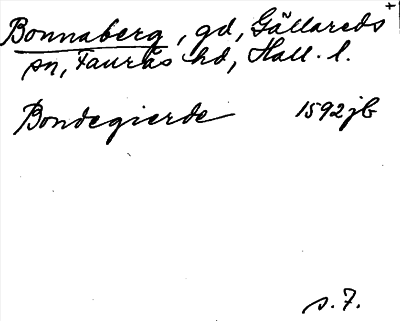 Bonnaberg, gd, Gällareds +
sn, Faurås hd, Hall. l.
Bondegierde 1592 jb
s. 7.